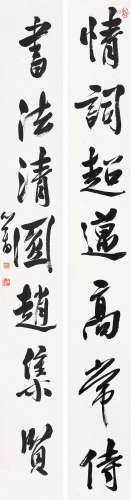 情詞超邁高常侍
書法清圓趙集賢
心畬